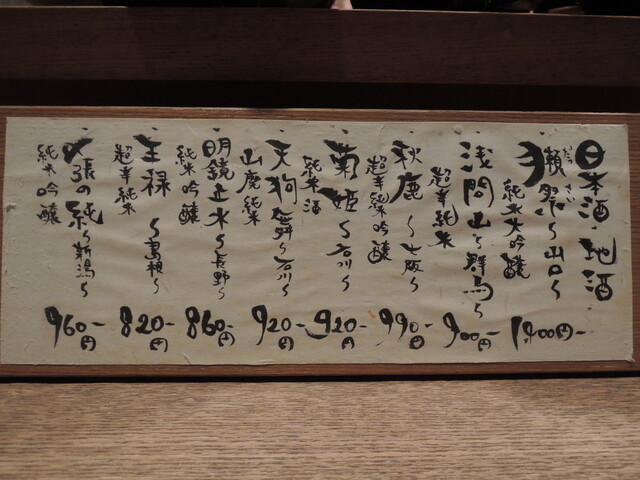 日本酒・地酒
獺祭〜山口〜
だっさい
純米大吟醸
1,400円-
浅間山〜群馬〜
超辛純米
900円-
秋鹿〜大阪〜
超辛純米吟醸
990円-
菊姫〜石川〜
純米酒
920円-
天狗舞〜石川〜
山廃純米
920円-
明鏡止水〜長野〜
純米吟醸
860円-
王禄〜島根〜
超辛純米
820円-
〆張の純〜新潟〜
純米吟醸
960円-